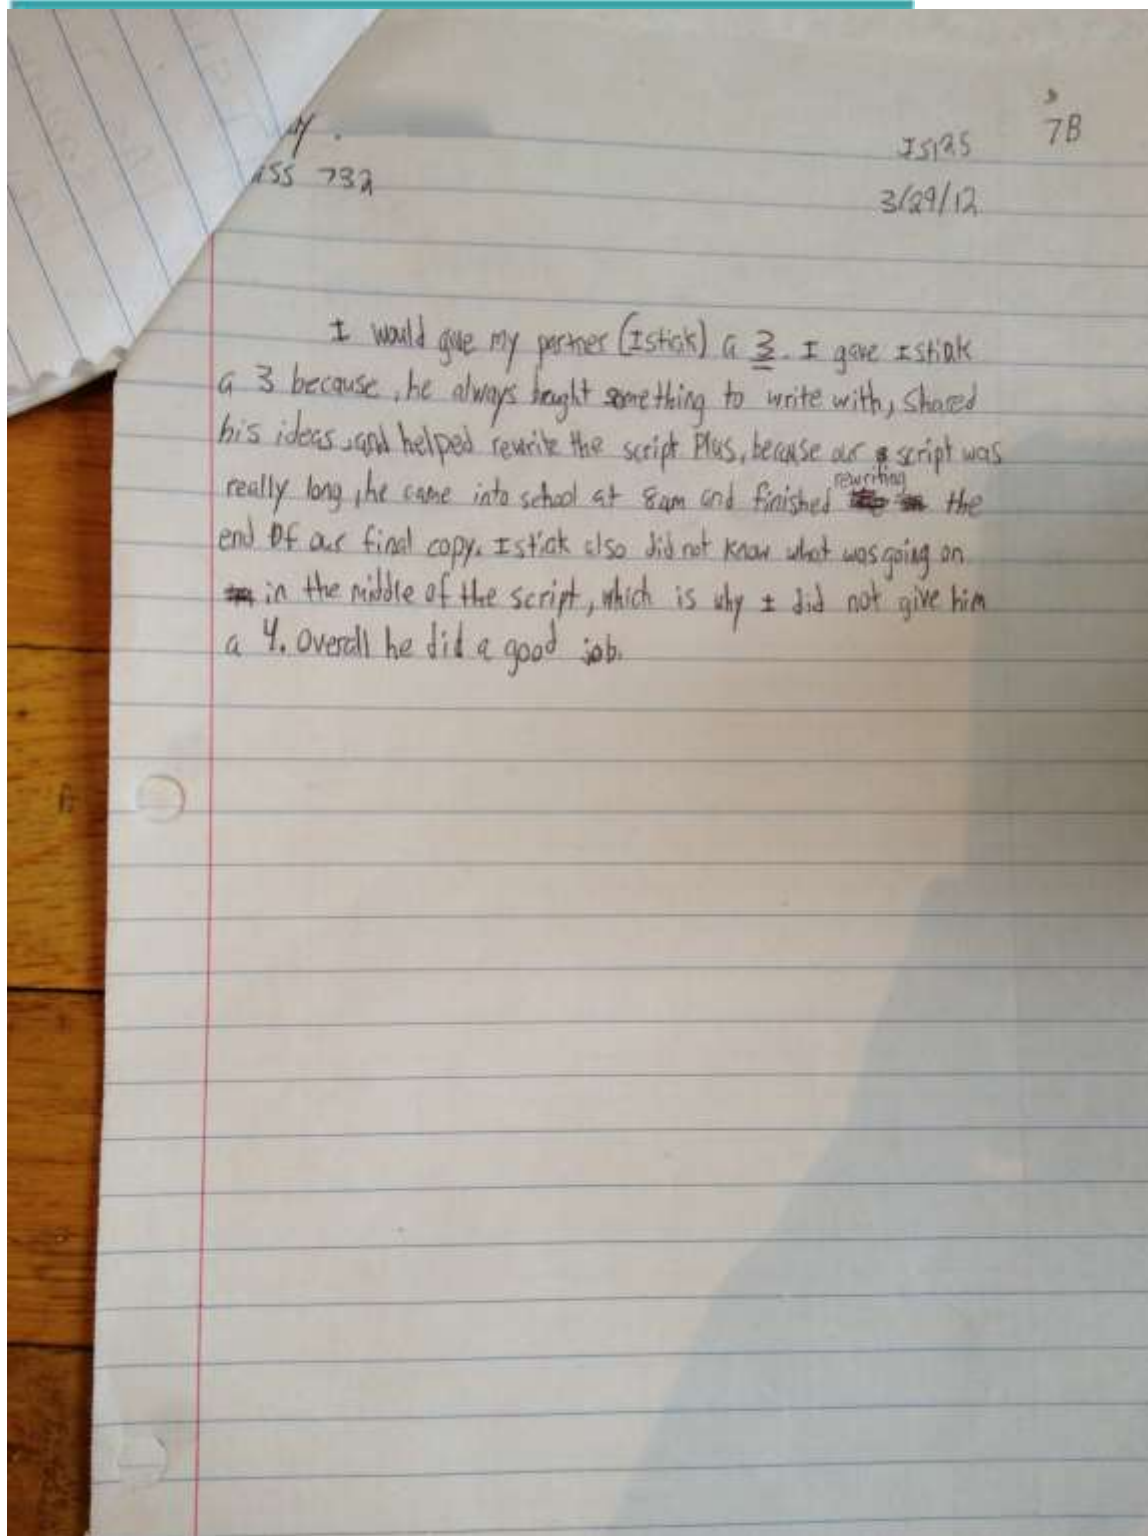 7B
IS125
ss 732
3/29/12
I would give my partner (Istiak) a 3. I gave Istiak
a 3 because, he always bought something to write with, shared
his ideas, and helped rewrite the script Plus, because our script was
really long, he came into school at 8am and finished rewriting the
end of our final copy. Istiak also did not know what was going on
in the middle of the script, which is why I did not give him
a 4. Overall he did a good job.